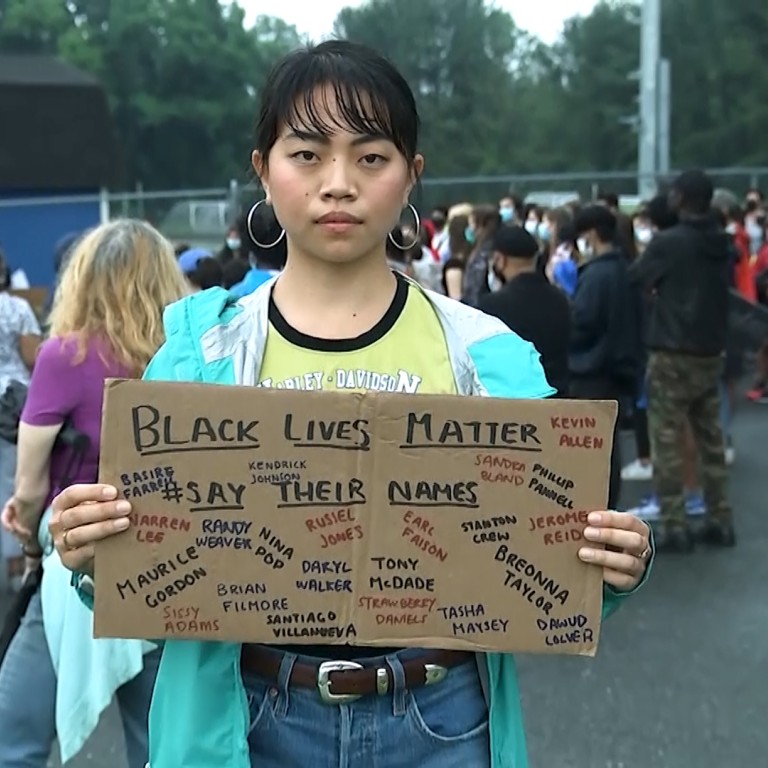 HARLEY-DAVIDSON
BLACK LIVES MATTER
KEVIN
ALLEN
BASIRE
FARRELL
KENDRICK
JOHNSON
SANDRA
BLAND
PHILLIP
PANNELL
#SAY THEIR NAMES
WARREN
LEE
RANDY
WEAVER
NINA
POP
RUSIEL
JONES
EARL
FAISON
STANTON
CREW
JEROME
REID
MAURICE
GORDON
BRIAN
FILMORE
DARYL
WALKER
TONY
McDADE
BREONNA
TAYLOR
SISSY
ADAMS
SANTIAGO
VILLANUEVA
STRAWBERRY
DANIELS
TASHA
MAYSEY
DAWUD